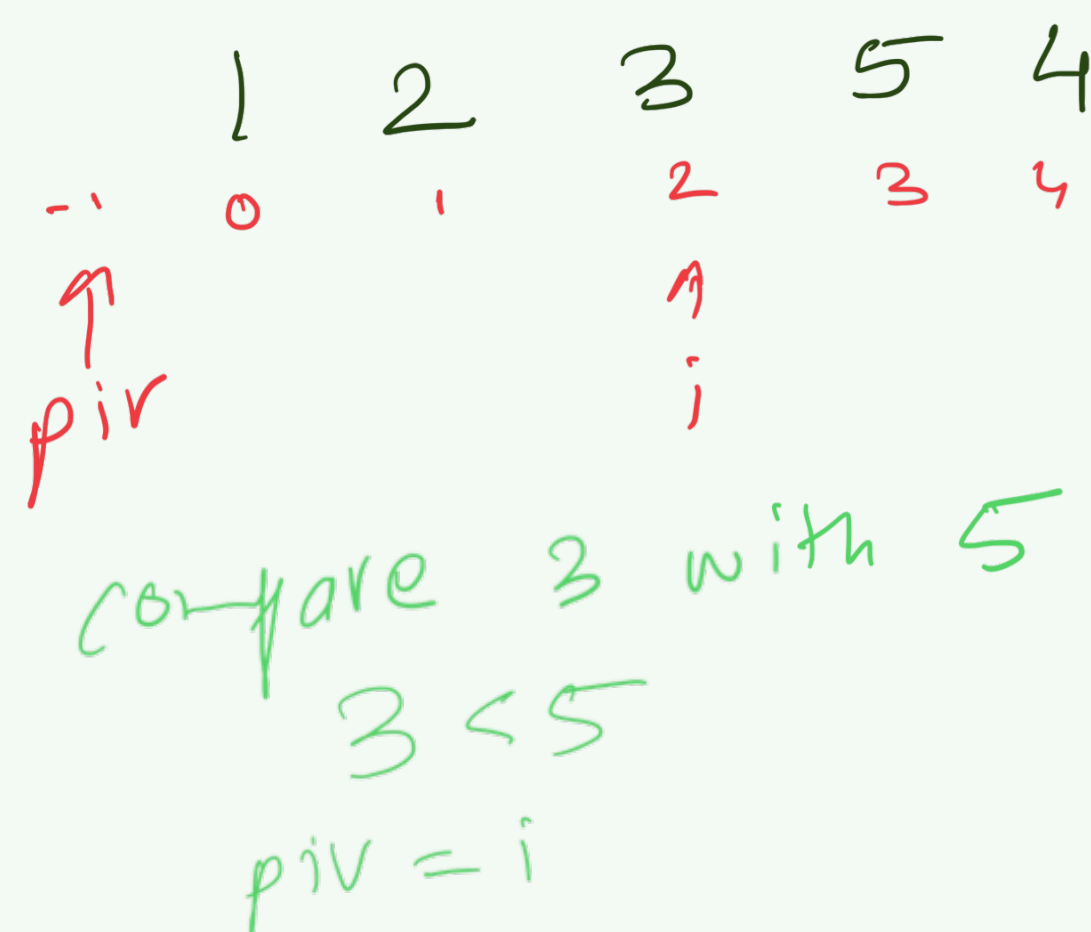 1 2 3 5 4
-1 0 1 2 3 4
piv i
compare 3 with 5
3 < 5
piv = i